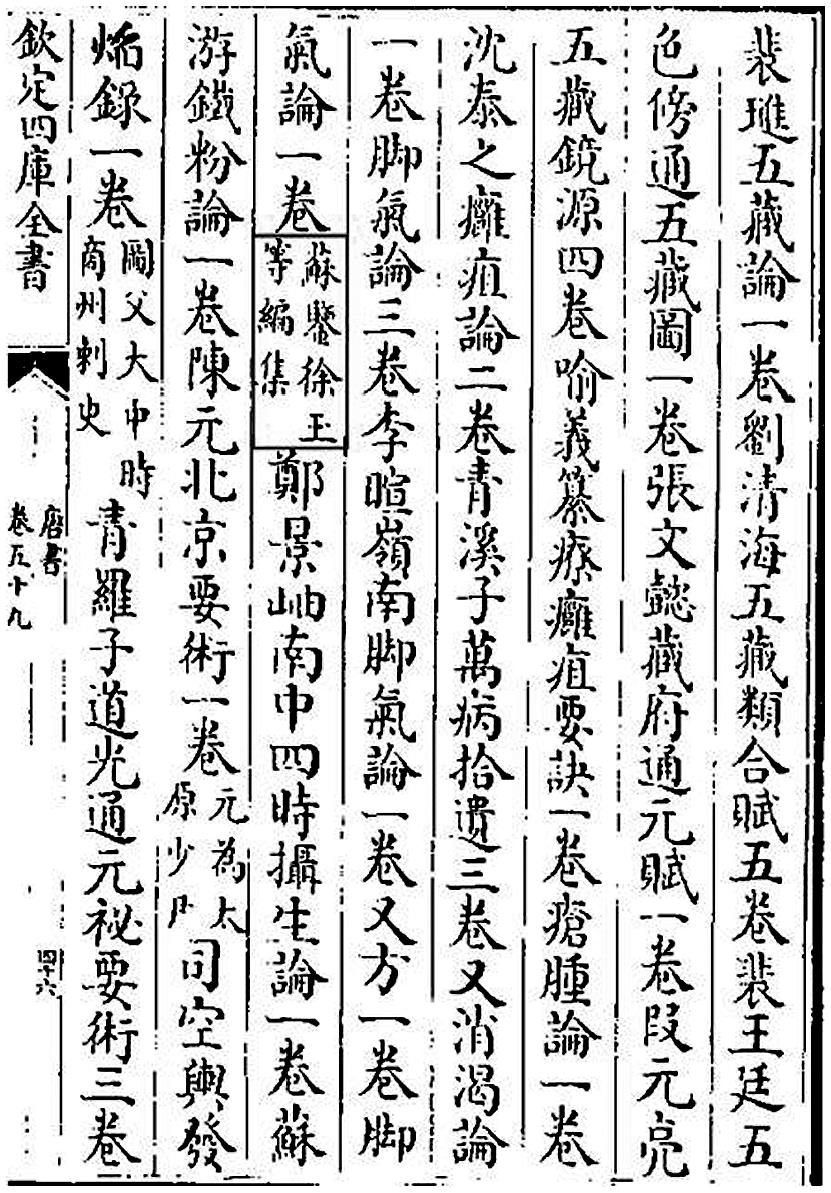 裴璡五藏論一卷劉清海五藏類合賦五卷裴王廷五
色傍通五藏圖一卷張文懿藏府通元賦一卷段元亮
五藏鏡源四卷喻義纂療癰疽要訣一卷瘡腫論一卷
沈泰之癰疽論二卷青溪子萬病拾遺三卷又消渴論
一卷脚氣論三卷李暄嶺南脚氣論一卷又方一卷脚
氣論一卷蘇鑒徐玉等編集鄭景岫南中四時攝生論一卷蘇
游鐵粉論一卷陳元北京要術一卷元為太原少尹司空輿發
焰録一卷圖父大中時商州刺史青羅子道光通元祕要術三卷
欽定四庫全書
唐書
卷五十九
四十六